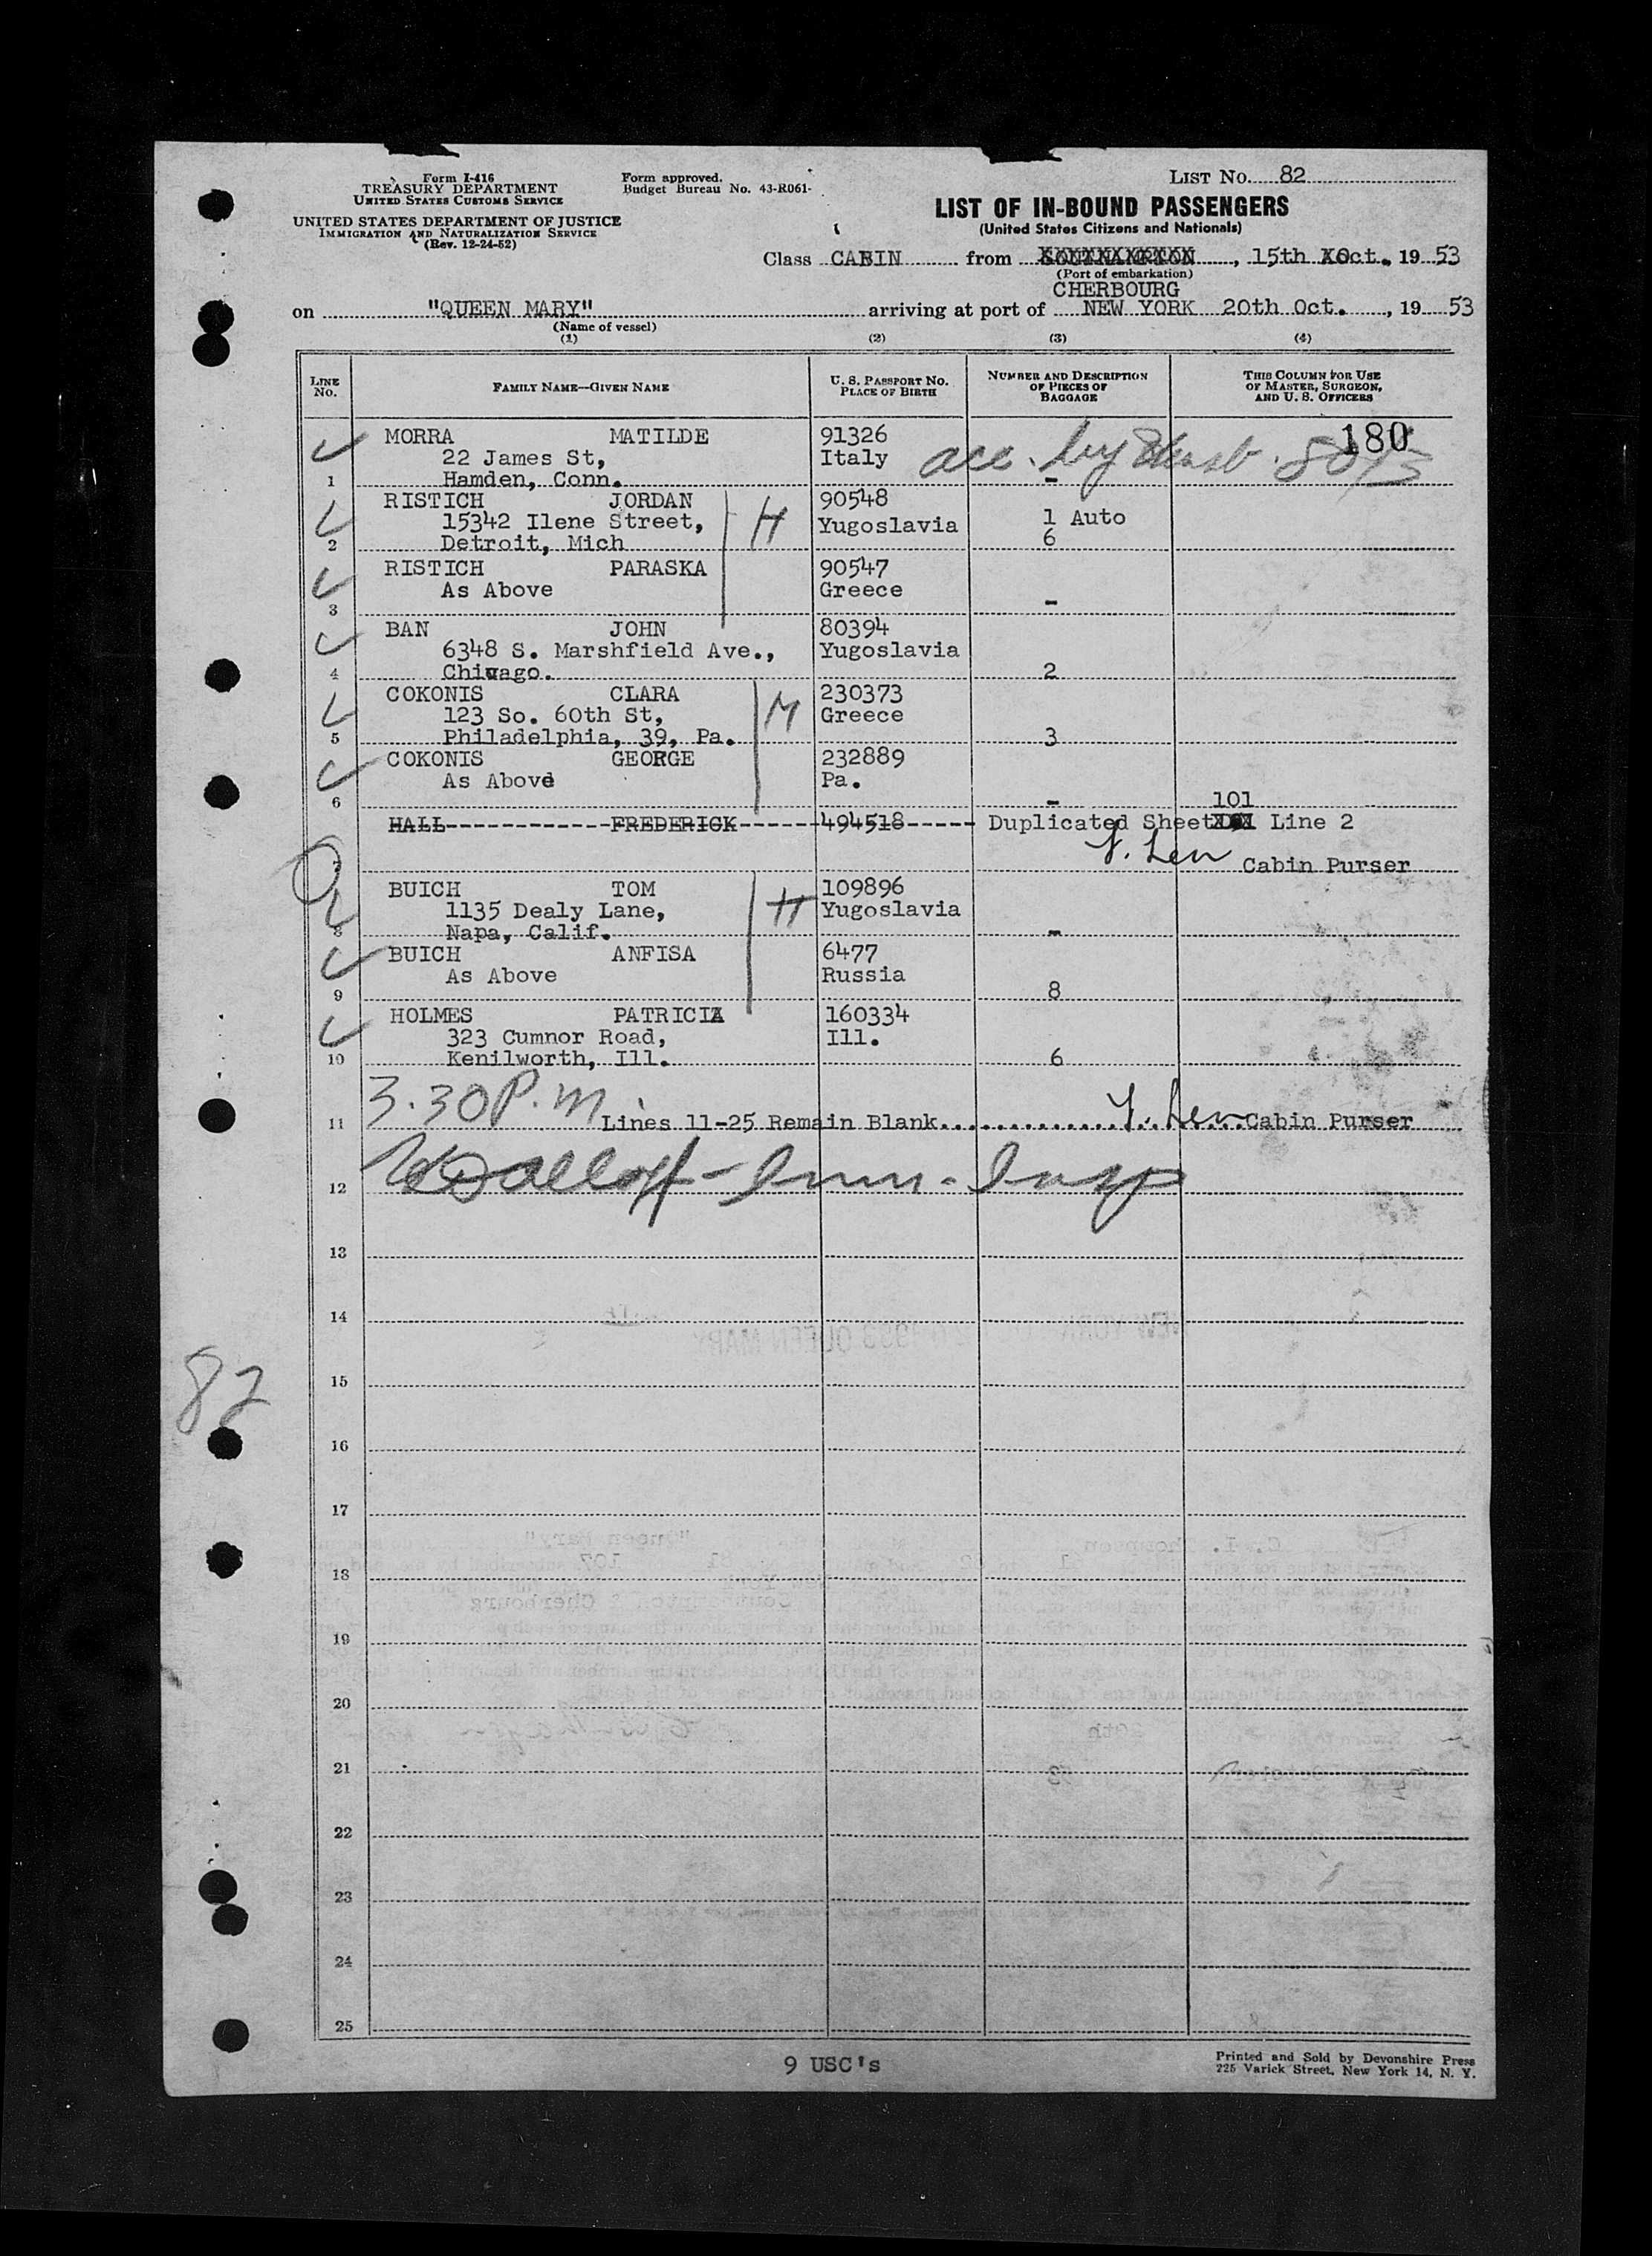 Form I-416
TREASURY DEPARTMENT
UNITED STATES CUSTOMS SERVICE
UNITED STATES DEPARTMENT OF JUSTICE
IMMIGRATION AND NATURALIZATION SERVICE
(Rev. 12-24-52)
Form approved.
Budget Bureau No. 43-R061-
LIST No. 82
LIST OF IN-BOUND PASSENGERS
(United States Citizens and Nationals)
Class CABIN from SOUTHAMPTON, 15th Oct. 19 53
(Port of embarkation)
CHERBOURG
on "QUEEN MARY" arriving at port of NEW YORK 20th Oct., 19 53
(Name of vessel)
(1) (2) (3) (4)
LINE No. FAMILY NAME—GIVEN NAME U. S. PASSPORT No. PLACE OF BIRTH NUMBER AND DESCRIPTION OF PIECES OF BAGGAGE THIS COLUMN FOR USE OF MASTER, SURGEON, AND U. S. OFFICERS
MORRA MATILDE 91326 180
22 James St, Italy acc. by
1 Hamden, Conn. -
RISTICH JORDAN 90548
15342 Ilene Street, H Yugoslavia 1 Auto
2 Detroit, Mich 6
RISTICH PARASKA 90547
As Above Greece
3 -
BAN JOHN 80394
6348 S. Marshfield Ave., Yugoslavia
4 Chicago. 2
COKONIS CLARA 230373
123 So. 60th St, M Greece
5 Philadelphia, 39, Pa. 3
COKONIS GEORGE 232889
As Above Pa.
6 - 101
HALL FREDERICK 494518 Duplicated Sheet Line 2
7 Cabin Purser
BUICH TOM 109896
1135 Dealy Lane, H Yugoslavia
8 Napa, Calif. -
BUICH ANFISA 6477
As Above Russia
9 8
HOLMES PATRICIA 160334
323 Cumnor Road, Ill.
10 Kenilworth, Ill. 6
3.30 P.M.
11 Lines 11-25 Remain Blank Cabin Purser
12
13
14
15
82
16
17
18
19
20
21
22
23
24
25
9 USC's
Printed and Sold by Devonshire Press
225 Varick Street, New York 14, N. Y.